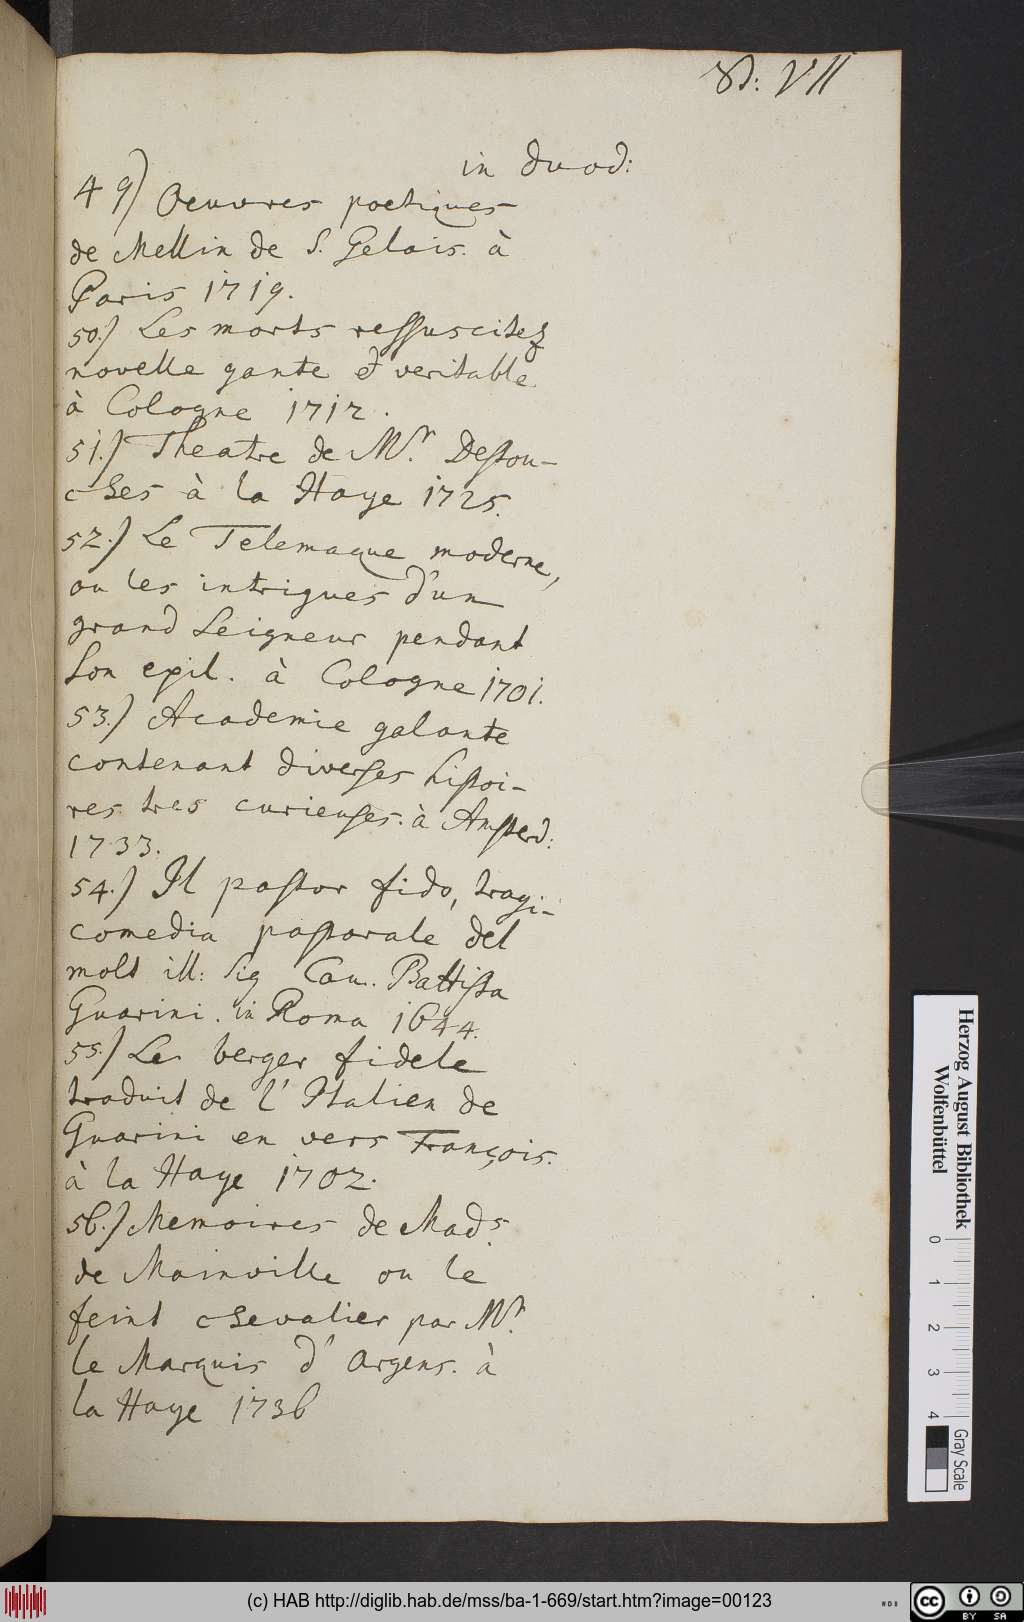 VII
in duod:
49) Oeuvres poetiques
de Mellin de S. Gelais. à
Paris 1719.
50.) Les morts ressuscitez
novelle gante et veritable
à Cologne 1712.
51.) Theatre de Mr. Destou-
ches à la Haye 1725.
52.) Le Telemaque moderne,
ou les intrigues d'un
grand Seigneur pendant
son exil. à Cologne 1701.
53.) Academie galante
contenant diverses histoi-
res tres curieuses. à Amsterd:
1733.
54.) Il pastor fido, tragi-
comedia pastorale del
molt ill: Sig Cau. Battista
Guarini. in Roma 1644.
55.) Le berger fidele
traduit de l'Italien de
Guarini en vers François.
à la Haye 1702.
56.) Memoires de Mads.
de Mainville ou le
feint chevalier par Mr.
le Marquis d'Argens. à
la Haye 1736
Herzog August Bibliothek
Wolfenbüttel
0 1 2 3 4
Gray Scale
(c) HAB http://diglib.hab.de/mss/ba-1-669/start.htm?image=00123
cc BY SA